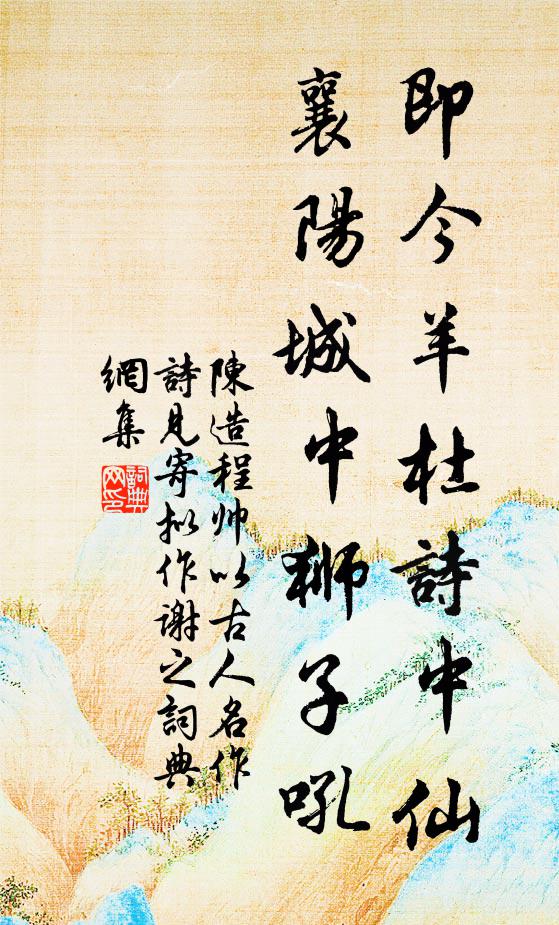 即今羊杜詩中仙
襄陽城中獅子吼
陳造程帅以古人名作
詩見寄拟作谢之詞典
網集
詞典
网印